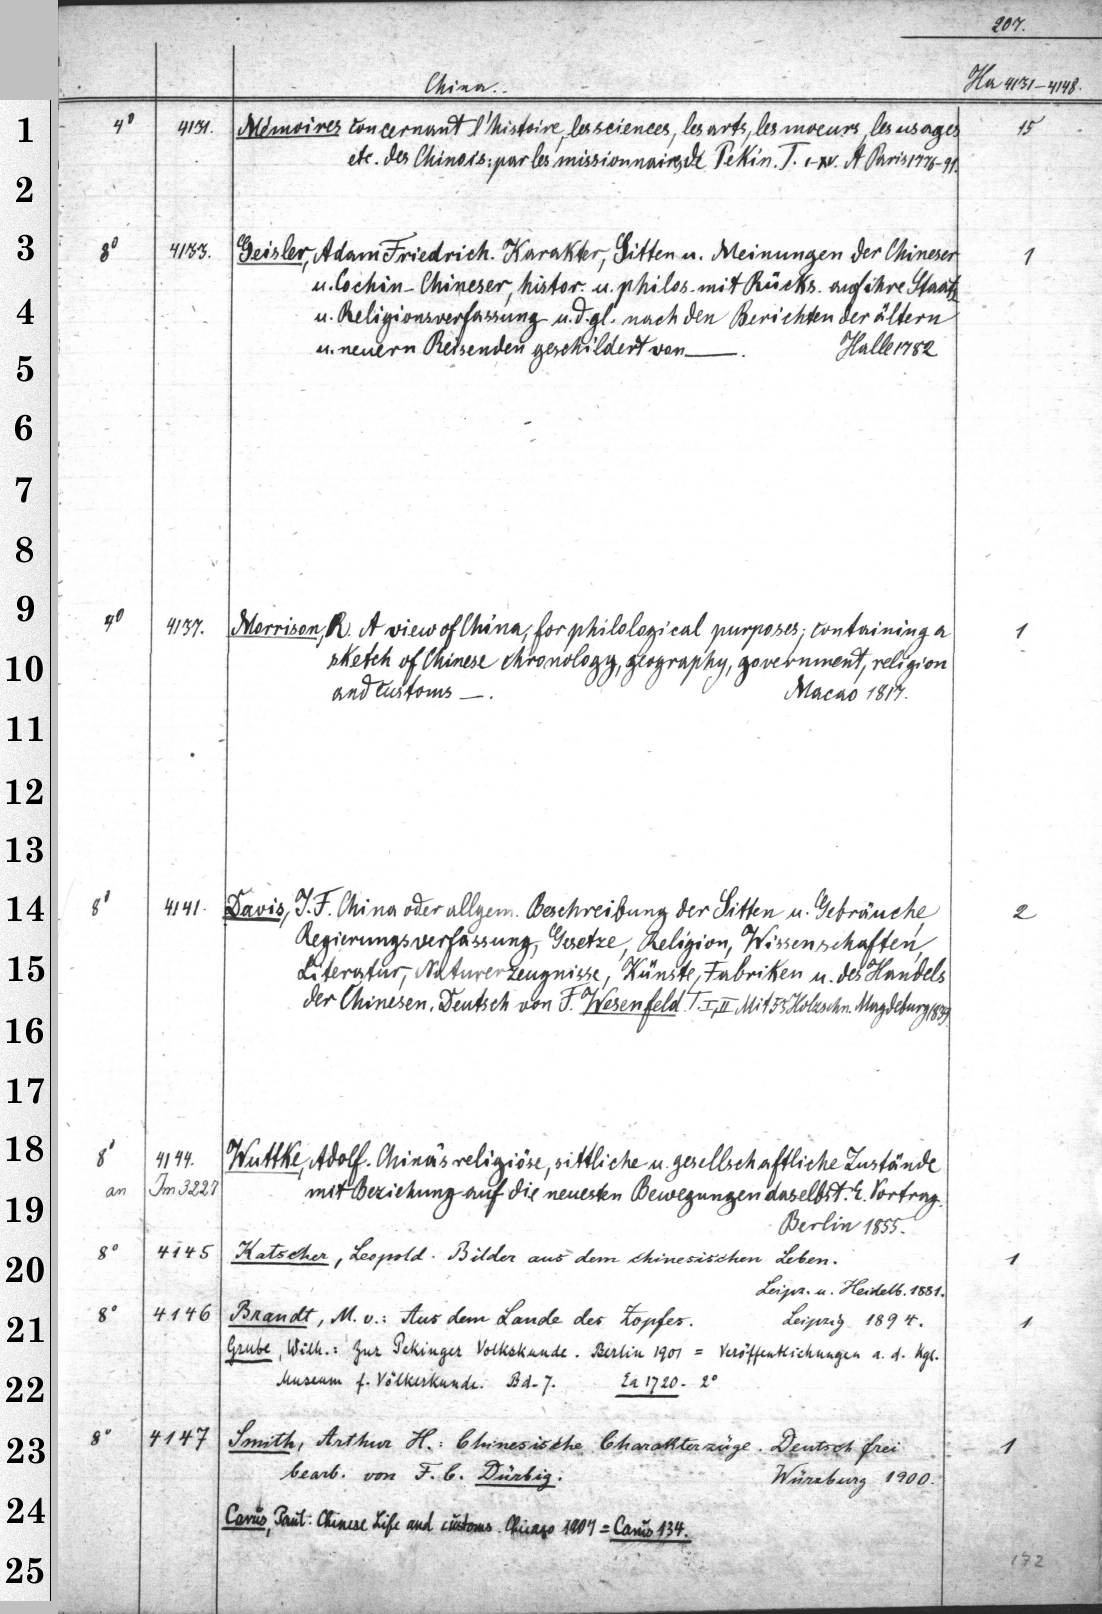 207.
China. Ha 4131-4148.
1 4° 4131. Mémoires concernant l'histoire, les sciences, les arts, les moeurs, les usages 15
etc. des Chinois; par les missionnaires de Pekin. T. I-XV. A Paris 1776-91.
2
3 8° 4133. Geisler, Adam Friedrich. Karakter, Sitten u. Meinungen der Chineser 1
u. Cochin-Chineser, histor. u. philos. mit Rücks. auf ihre Staats
4 u. Religionsverfassung u. d. gl. nach den Berichten der ältern
5 u. neuern Reisenden geschildert von —. Halle 1782
6
7
8
9 4° 4137. Morrison, R. A view of China, for philological purposes; containing a 1
10 sketch of Chinese chronology, geography, government, religion
and customs —. Macao 1817.
11
12
13
14 8° 4141. Davis, J. F. China oder allgem. Beschreibung der Sitten u. Gebräuche 2
Regierungsverfassung, Gesetze, Religion, Wissenschaften,
15 Literatur, Naturerzeugnisse, Künste, Fabriken u. des Handels
der Chinesen. Deutsch von F. Wesenfeld T. I, II Mit 55 Holzschn. Magdeburg 1839
16
17
18 8° 4144. Wuttke, Adolf. China's religiöse, sittliche u. gesellschaftliche Zustände
19 an Im 3227 mit Beziehung auf die neuesten Bewegungen daselbst. E. Vortrag.
Berlin 1855.
20 8° 4145 Katscher, Leopold. Bilder aus dem chinesischen Leben. 1
Leipz. u. Heidelb. 1881.
21 8° 4146 Brandt, M. v.: Aus dem Lande des Zopfes. Leipzig 1894. 1
Grube, Wilh.: Zur Pekinger Volkskunde. Berlin 1901 = Veröffentlichungen a. d. kgl.
22 Museum f. Völkerkunde. Bd. 7. Ea 1720. 2°
23 8° 4147 Smith, Arthur H.: Chinesische Charakterzüge. Deutsch frei 1
bearb. von F. C. Dürbig. Würzburg 1900.
24 Carus, Paul: Chinese Life and customs. Chicago 1907 = Carus 134.
25 172